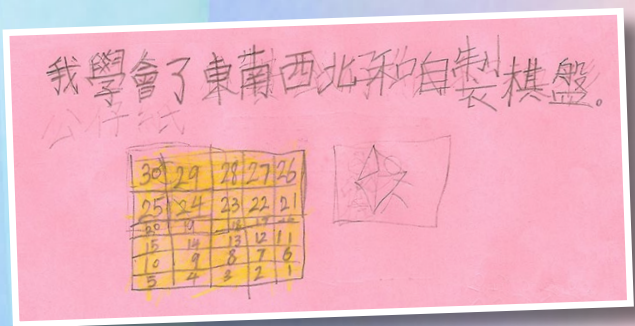 我學會了東南西北和自製棋盤。
公仔紙
30 29 28 27 26
25 24 23 22 21
20 19 18 17 16
15 14 13 12 11
10 9 8 7 6
5 4 3 2 1